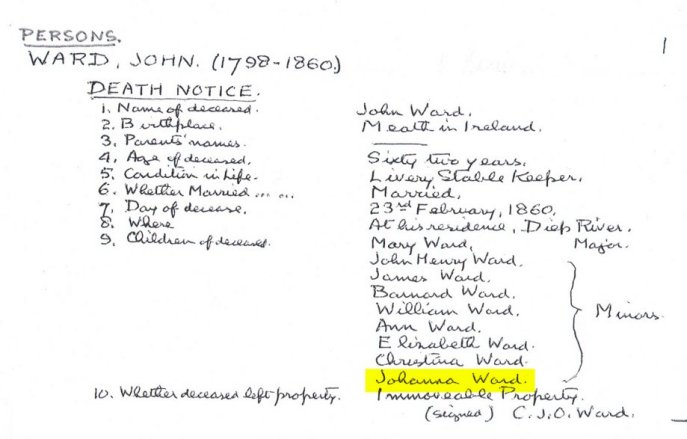 PERSONS. 1
WARD, JOHN. (1798-1860)
DEATH NOTICE.
1. Name of deceased. John Ward.
2. Birthplace. Meath in Ireland.
3. Parents' names. ———
4. Age of deceased. Sixty two years.
5. Condition in Life. Livery Stable Keeper.
6. Whether Married ... ... Married.
7. Day of decease. 23rd February, 1860.
8. Where At his residence, Diep River.
9. Children of deceased. Mary Ward, Major.
John Henry Ward.
James Ward.
Barnard Ward.
William Ward. Minors
Ann Ward.
Elizabeth Ward.
Christina Ward.
Johanna Ward.
10. Whether deceased left property. Immoveable Property.
(signed) C.J.O. Ward.